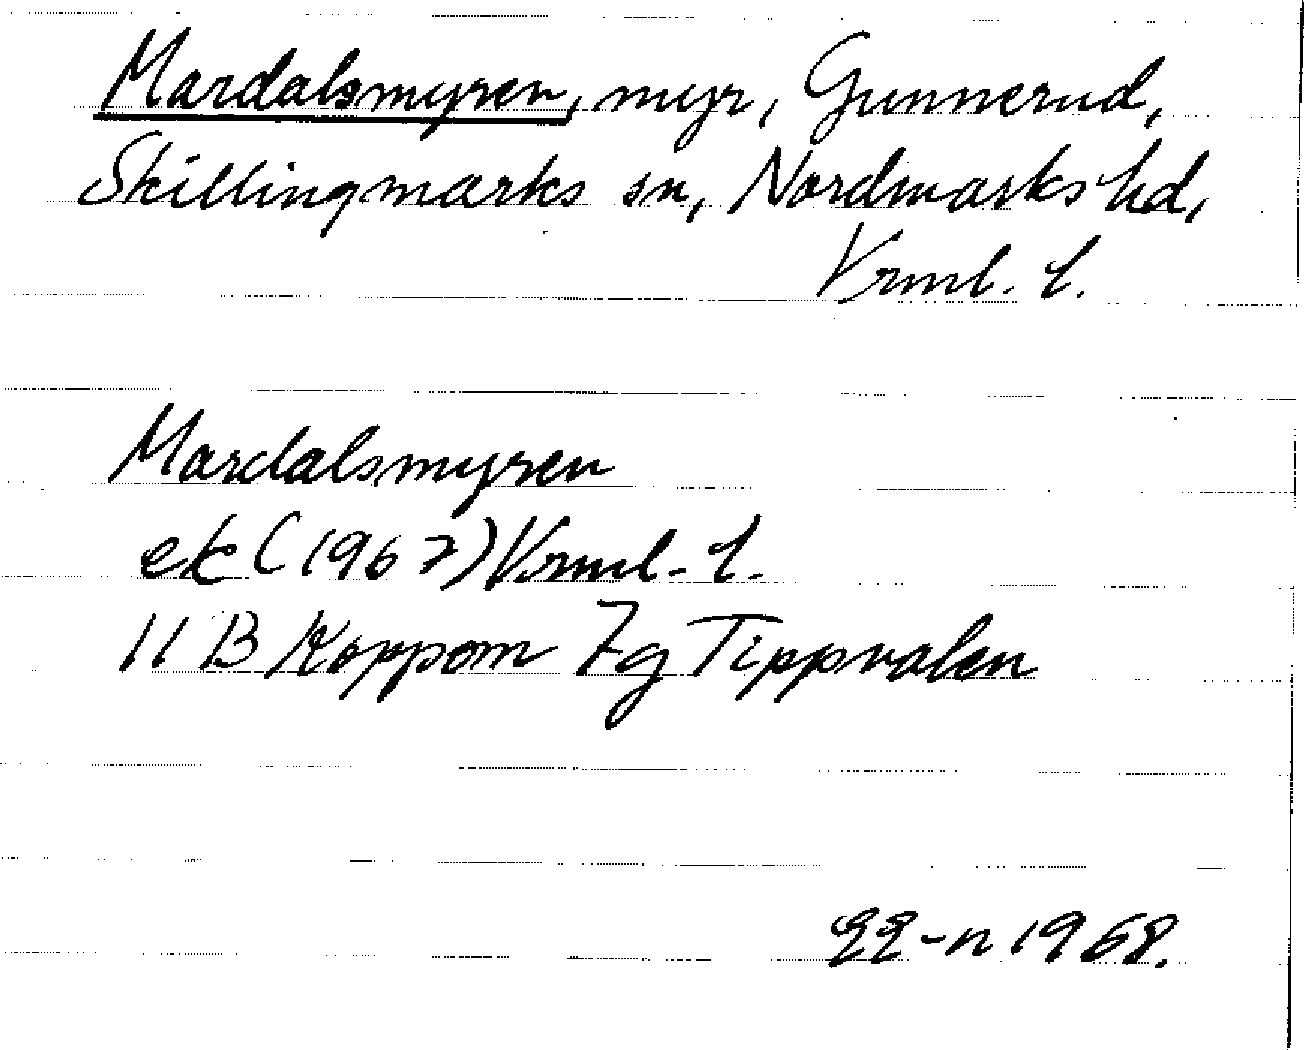 Mardalsmyren, myr, Gunnerud,
Skillingmarks sn, Nordmarks hd,
Vrml. l.
Mardalsmyren
ek (1967) Vrml. l.
11 B Koppom 7g Tippvalen
1968.